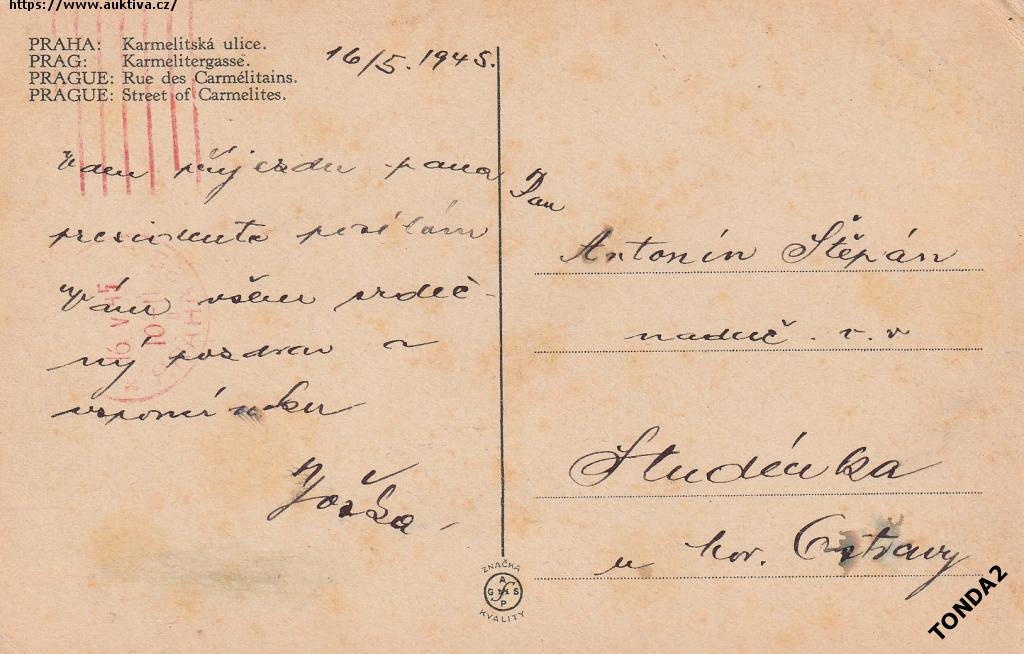 https://www.auktiva.cz/
PRAHA: Karmelitská ulice.
PRAG: Karmelitergasse.
PRAGUE: Rue des Carmélitains.
PRAGUE: Street of Carmelites.
16/5. 1945.
V den příjezdu pana
presidenta posílám
Vám všem srdeč-
ný pozdrav a
vzpomínku
Joška
Pan
Antonín Štěpán
naduč. v. v
Studénka
u Mor. Ostravy
ZNAČKA
KVALITY
TONDA2